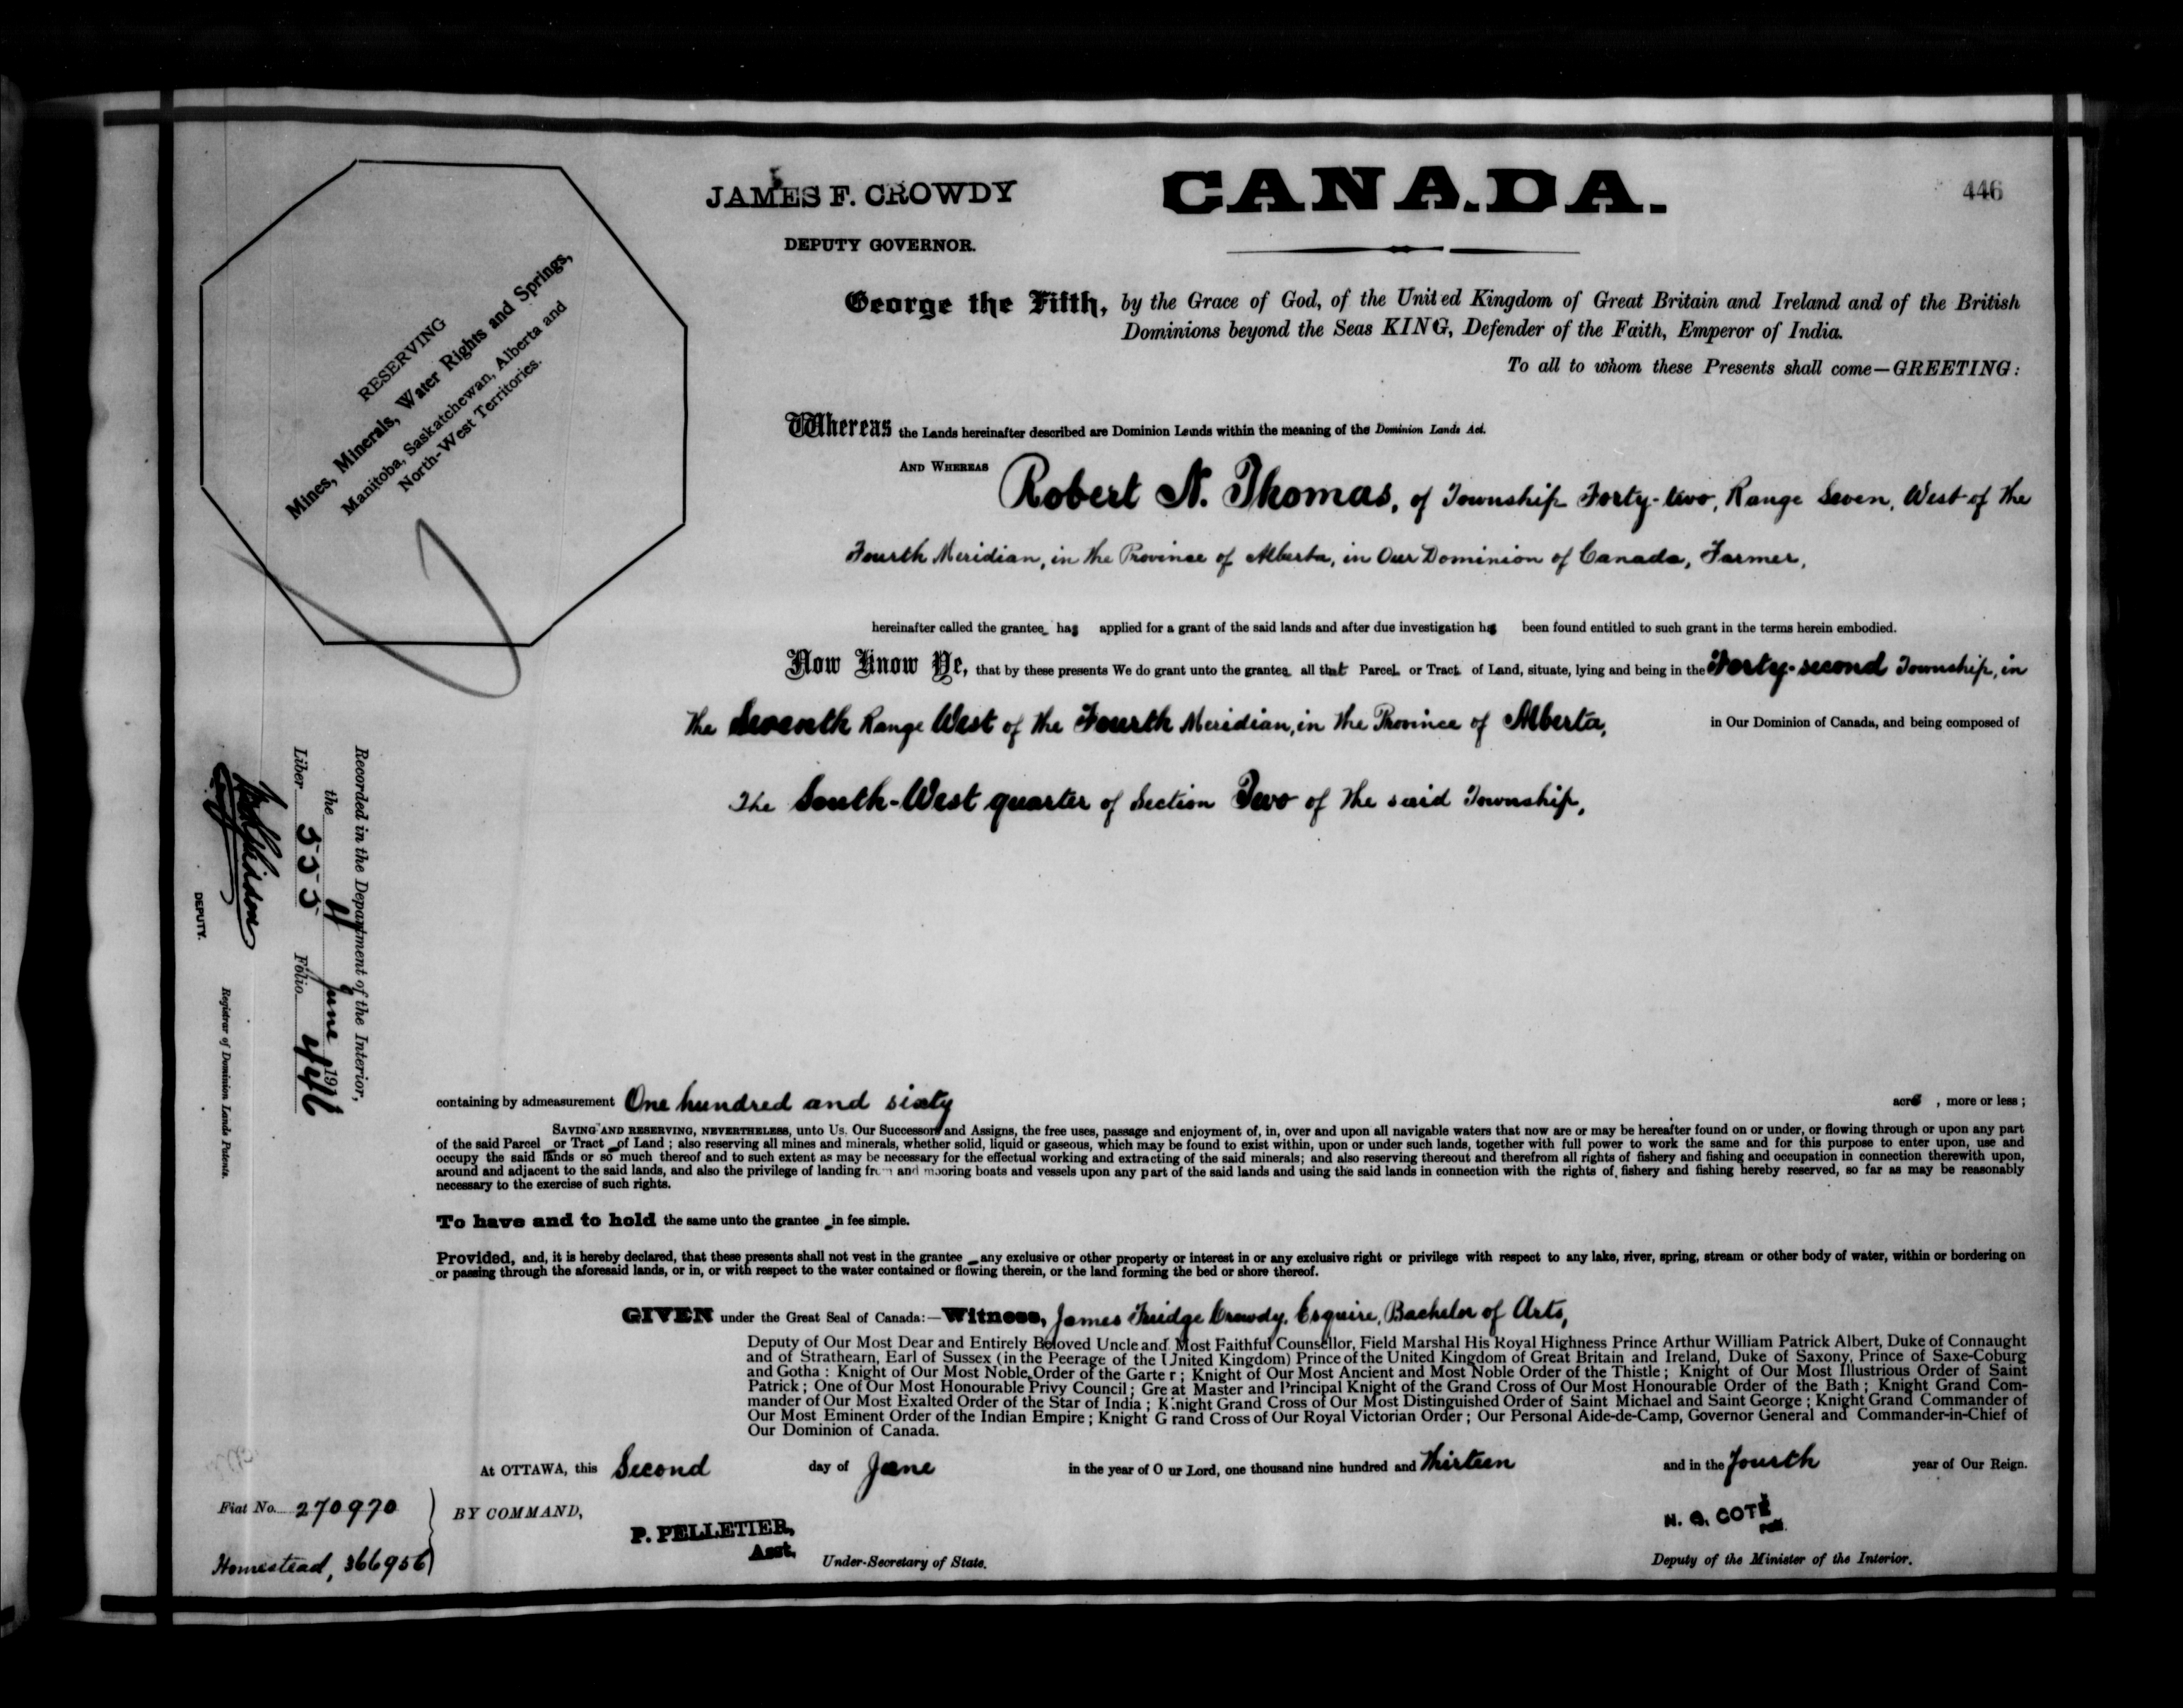 JAMES F. CROWDY
DEPUTY GOVERNOR.
CANADA.
446
RESERVING
Mines, Minerals, Water Rights and Springs,
Manitoba, Saskatchewan, Alberta and
North-West Territories.
George the Fifth, by the Grace of God, of the United Kingdom of Great Britain and Ireland and of the British
Dominions beyond the Seas KING, Defender of the Faith, Emperor of India.
To all to whom these Presents shall come—GREETING:
Whereas the Lands hereinafter described are Dominion Lands within the meaning of the Dominion Lands Act.
AND WHEREAS Robert N. Thomas, of Township Forty-two, Range Seven, West of the
Fourth Meridian, in the Province of Alberta, in Our Dominion of Canada, Farmer,
hereinafter called the grantee has applied for a grant of the said lands and after due investigation has been found entitled to such grant in the terms herein embodied.
Now Know Ye, that by these presents We do grant unto the grantee all that Parcel or Tract of Land, situate, lying and being in the Forty-second Township, in
the Seventh Range West of the Fourth Meridian, in the Province of Alberta, in Our Dominion of Canada, and being composed of
The South-West quarter of Section Two of the said Township,
Recorded in the Department of the Interior,
the 4 June 191
Liber 555 Folio 446
DEPUTY.
Registrar of Dominion Lands Patents.
containing by admeasurement One hundred and sixty acres , more or less ;
SAVING AND RESERVING, NEVERTHELESS, unto Us. Our Successors and Assigns, the free uses, passage and enjoyment of, in, over and upon all navigable waters that now are or may be hereafter found on or under, or flowing through or upon any part
of the said Parcel or Tract of Land ; also reserving all mines and minerals, whether solid, liquid or gaseous, which may be found to exist within, upon or under such lands, together with full power to work the same and for this purpose to enter upon, use and
occupy the said lands or so much thereof and to such extent as may be necessary for the effectual working and extracting of the said minerals; and also reserving thereout and therefrom all rights of fishery and fishing and occupation in connection therewith upon,
around and adjacent to the said lands, and also the privilege of landing from and mooring boats and vessels upon any part of the said lands and using the said lands in connection with the rights of fishery and fishing hereby reserved, so far as may be reasonably
necessary to the exercise of such rights.
To have and to hold the same unto the grantee in fee simple.
Provided, and, it is hereby declared, that these presents shall not vest in the grantee any exclusive or other property or interest in or any exclusive right or privilege with respect to any lake, river, spring, stream or other body of water, within or bordering on
or passing through the aforesaid lands, or in, or with respect to the water contained or flowing therein, or the land forming the bed or shore thereof.
GIVEN under the Great Seal of Canada:—Witness, James Fuidge Crowdy, Esquire, Bachelor of Arts,
Deputy of Our Most Dear and Entirely Beloved Uncle and Most Faithful Counsellor, Field Marshal His Royal Highness Prince Arthur William Patrick Albert, Duke of Connaught
and of Strathearn, Earl of Sussex (in the Peerage of the United Kingdom) Prince of the United Kingdom of Great Britain and Ireland, Duke of Saxony, Prince of Saxe-Coburg
and Gotha : Knight of Our Most Noble Order of the Garter ; Knight of Our Most Ancient and Most Noble Order of the Thistle ; Knight of Our Most Illustrious Order of Saint
Patrick ; One of Our Most Honourable Privy Council ; Great Master and Principal Knight of the Grand Cross of Our Most Honourable Order of the Bath ; Knight Grand Com-
mander of Our Most Exalted Order of the Star of India ; Knight Grand Cross of Our Most Distinguished Order of Saint Michael and Saint George ; Knight Grand Commander of
Our Most Eminent Order of the Indian Empire ; Knight Grand Cross of Our Royal Victorian Order ; Our Personal Aide-de-Camp, Governor General and Commander-in-Chief of
Our Dominion of Canada.
At OTTAWA, this Second day of June in the year of Our Lord, one thousand nine hundred and thirteen and in the fourth year of Our Reign.
Fiat No. 270970
BY COMMAND,
Homestead, 366956
P. PELLETIER,
Asst.
Under-Secretary of State.
N. O. COTÉ
Deputy of the Minister of the Interior.